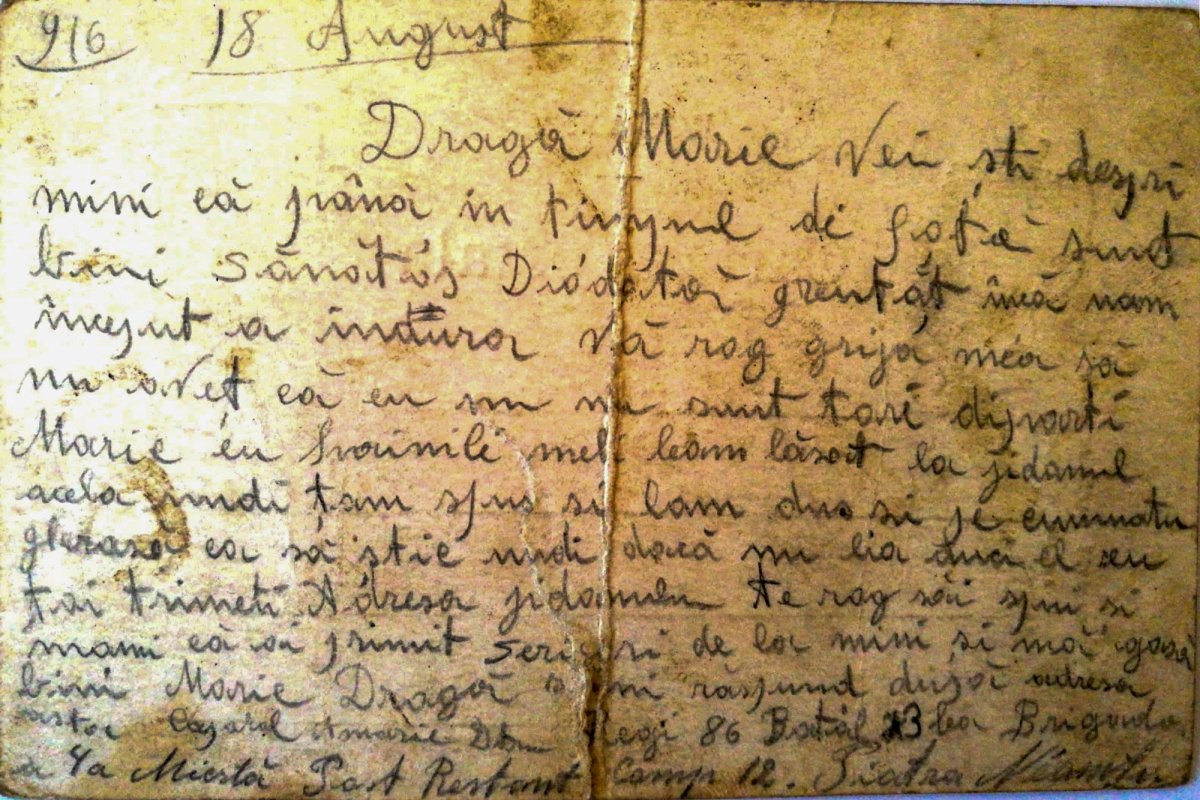 916 18 August
Dragă Marie Vei sti despri
mini că până in timpul de faţă sunt
bini Sănătós Diódată greutăţ încă nam
început a indura Vă rog grija mea să
nu aveţ că eu nu nu sunt tari diparti
Marie eu hainili meli leam lăsat la jidanul
acela undi ţam spus si lam dus si pe cumnatu
ca să stie undi dacă nu lia duci el eu
ţoi trimeti Adresa jidanului Te rog săi spui si
mami că ai primit scrisori de la mini si mă găsăsc
bini Marie Dragă să-mi răspund după adresa
asta Caporal Amarie Regi 86 Batal 13 lea Brigada
a 4a Micstă Post Restant Comp 12. Piatra Neamtu